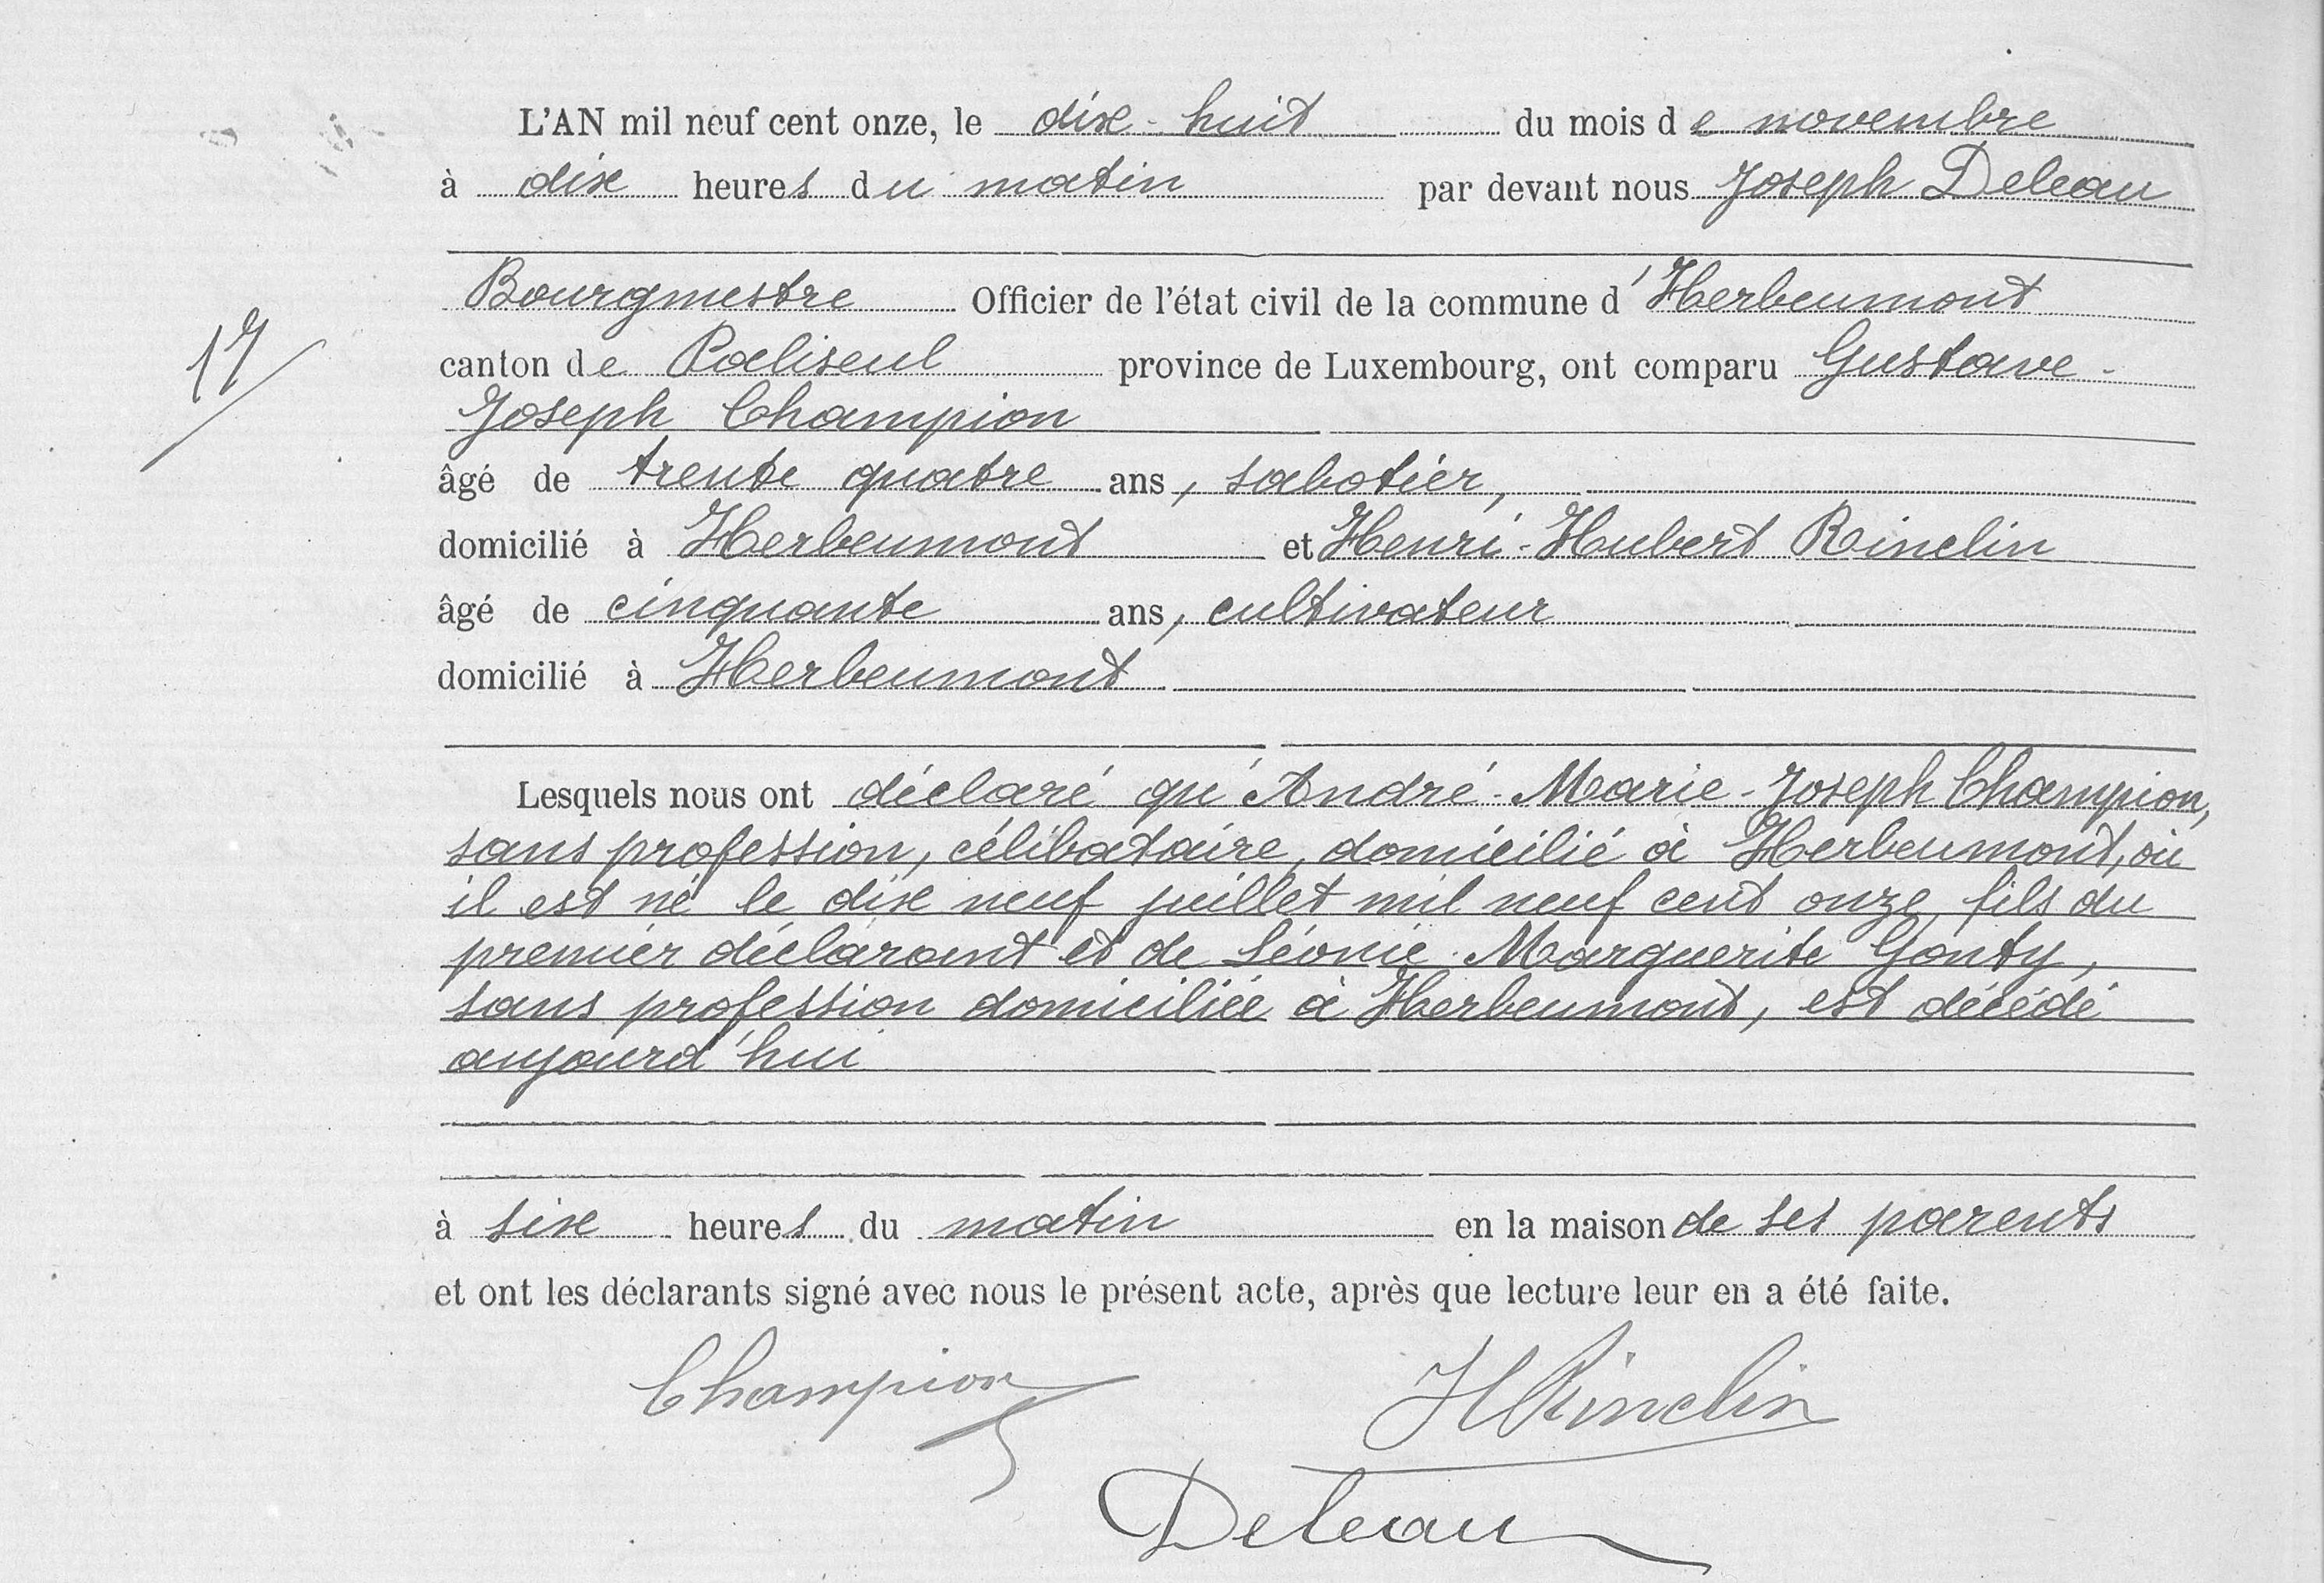 L'AN mil neuf cent onze, le dix-huit du mois de novembre
à dix heures du matin par devant nous Joseph Deleau
Bourgmestre Officier de l'état civil de la commune d'Herbeumont
17
canton de Paliseul province de Luxembourg, ont comparu Gustave-
Joseph Champion
âgé de trente quatre ans, sabotier,
domicilié à Herbeumont et Henri-Hubert Rinclin
âgé de cinquante ans, cultivateur
domicilié à Herbeumont
Lesquels nous ont déclaré qu'André-Marie-Joseph Champion,
sans profession, célibataire, domicilié à Herbeumont, où
il est né le dix neuf juillet mil neuf cent onze, fils du
premier déclarant et de Léonie-Marguerite Gonty,
sans profession domiciliée à Herbeumont, est décédé
aujourd'hui
à six heures du matin en la maison de ses parents
et ont les déclarants signé avec nous le présent acte, après que lecture leur en a été faite.
Champion HRinclin
Deleau